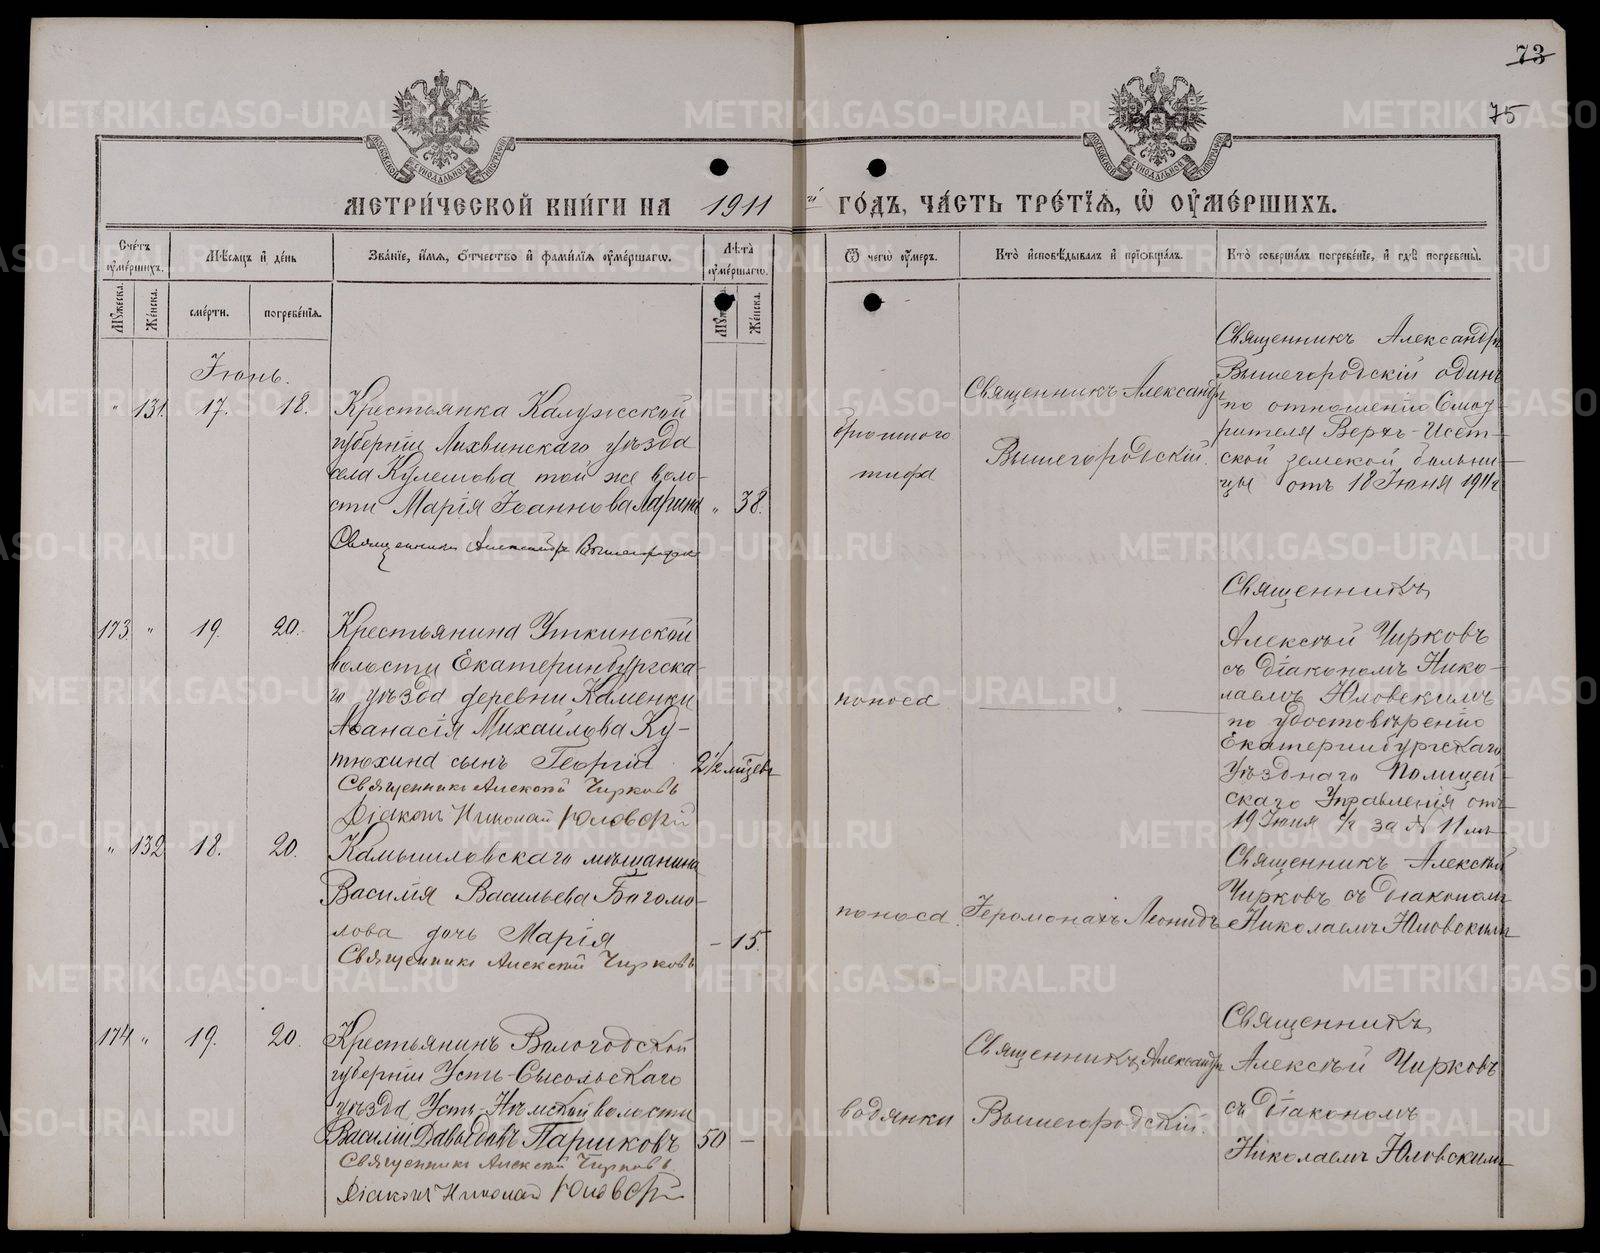 73
75
МЕТРИ́ЧЕСКОЙ КНИ́ГИ НА 1911 й ГО́ДЪ, ЧА́СТЬ ТРЕ́ТIѦ, Ѡ ОУМЕ́РШИХЪ.
Сче́тъ оуме́ршихъ.
Мѣ́сяцъ и де́нь
Зва́нїе, и́мѧ, о́тчество и фами́лїѧ оуме́ршагѡ.
Лѣ́та оуме́ршагѡ.
Ѿ чегѡ̀ оу́меръ.
Кто̀ исповѣ́дывалъ и прїобща́лъ.
Кто̀ соверша́лъ погребе́нїе, и гдѣ̀ погребены̀.
Му́жеска.
Же́нска.
сме́рти.
погребе́нїѧ.
Же́нска.
Іюнь.
" 131. 17. 18.
Крестьянка Калужской
губерніи Лихвинскаго уѣзда
села Кулешова той же воло-
сти Марія Іоаннова Ларина " 38.
Священникъ Александръ Вышегородскій
брюшного
тифа
Священникъ Александръ
Вышегородскій.
Священникъ Александръ
Вышегородскій одинъ
по отношенію Смот-
рителя Верхъ-Исет-
ской земской больни-
цы отъ 18 Іюня 1911 г.
173 " 19. 20.
Крестьянина Уткинской
волости Екатеринбургска-
го уѣзда деревни Каменки
Аѳанасія Михайлова Ку-
тюхина сынъ Георгій 2 1/2 мѣсяц.
Священникъ Алексѣй Чирковъ
Діаконъ Николай Юловскій
поноса
Священникъ
Алексѣй Чирковъ
съ Діакономъ Нико-
лаемъ Юловскимъ
по удостовѣренію
Екатеринбургскаго
Уѣзднаго Полицей-
скаго Управленія отъ
19 Іюня с/г за №
" 132 18. 20.
Камышловскаго мѣщанина
Василія Васильева Богомо-
лова дочь Марія - 15.
Священникъ Алексѣй Чирковъ
поноса.
Іеромонахъ Леонидъ
Священникъ Алексѣй
Чирковъ съ Діакономъ
Николаемъ Юловскимъ
174 " 19. 20.
Крестьянинъ Вологодской
губерніи Усть-Сысольскаго
уѣзда Усть-Нѣмской волости
Василій Давыдовъ Паршковъ 50 -
Священникъ Алексѣй Чирковъ
Діаконъ Николай Юловскій
водянки
Священникъ Александръ
Вышегородскій.
Священникъ
Алексѣй Чирковъ
съ Діакономъ
Николаемъ Юловскимъ
METRIKI.GASO-URAL.RU